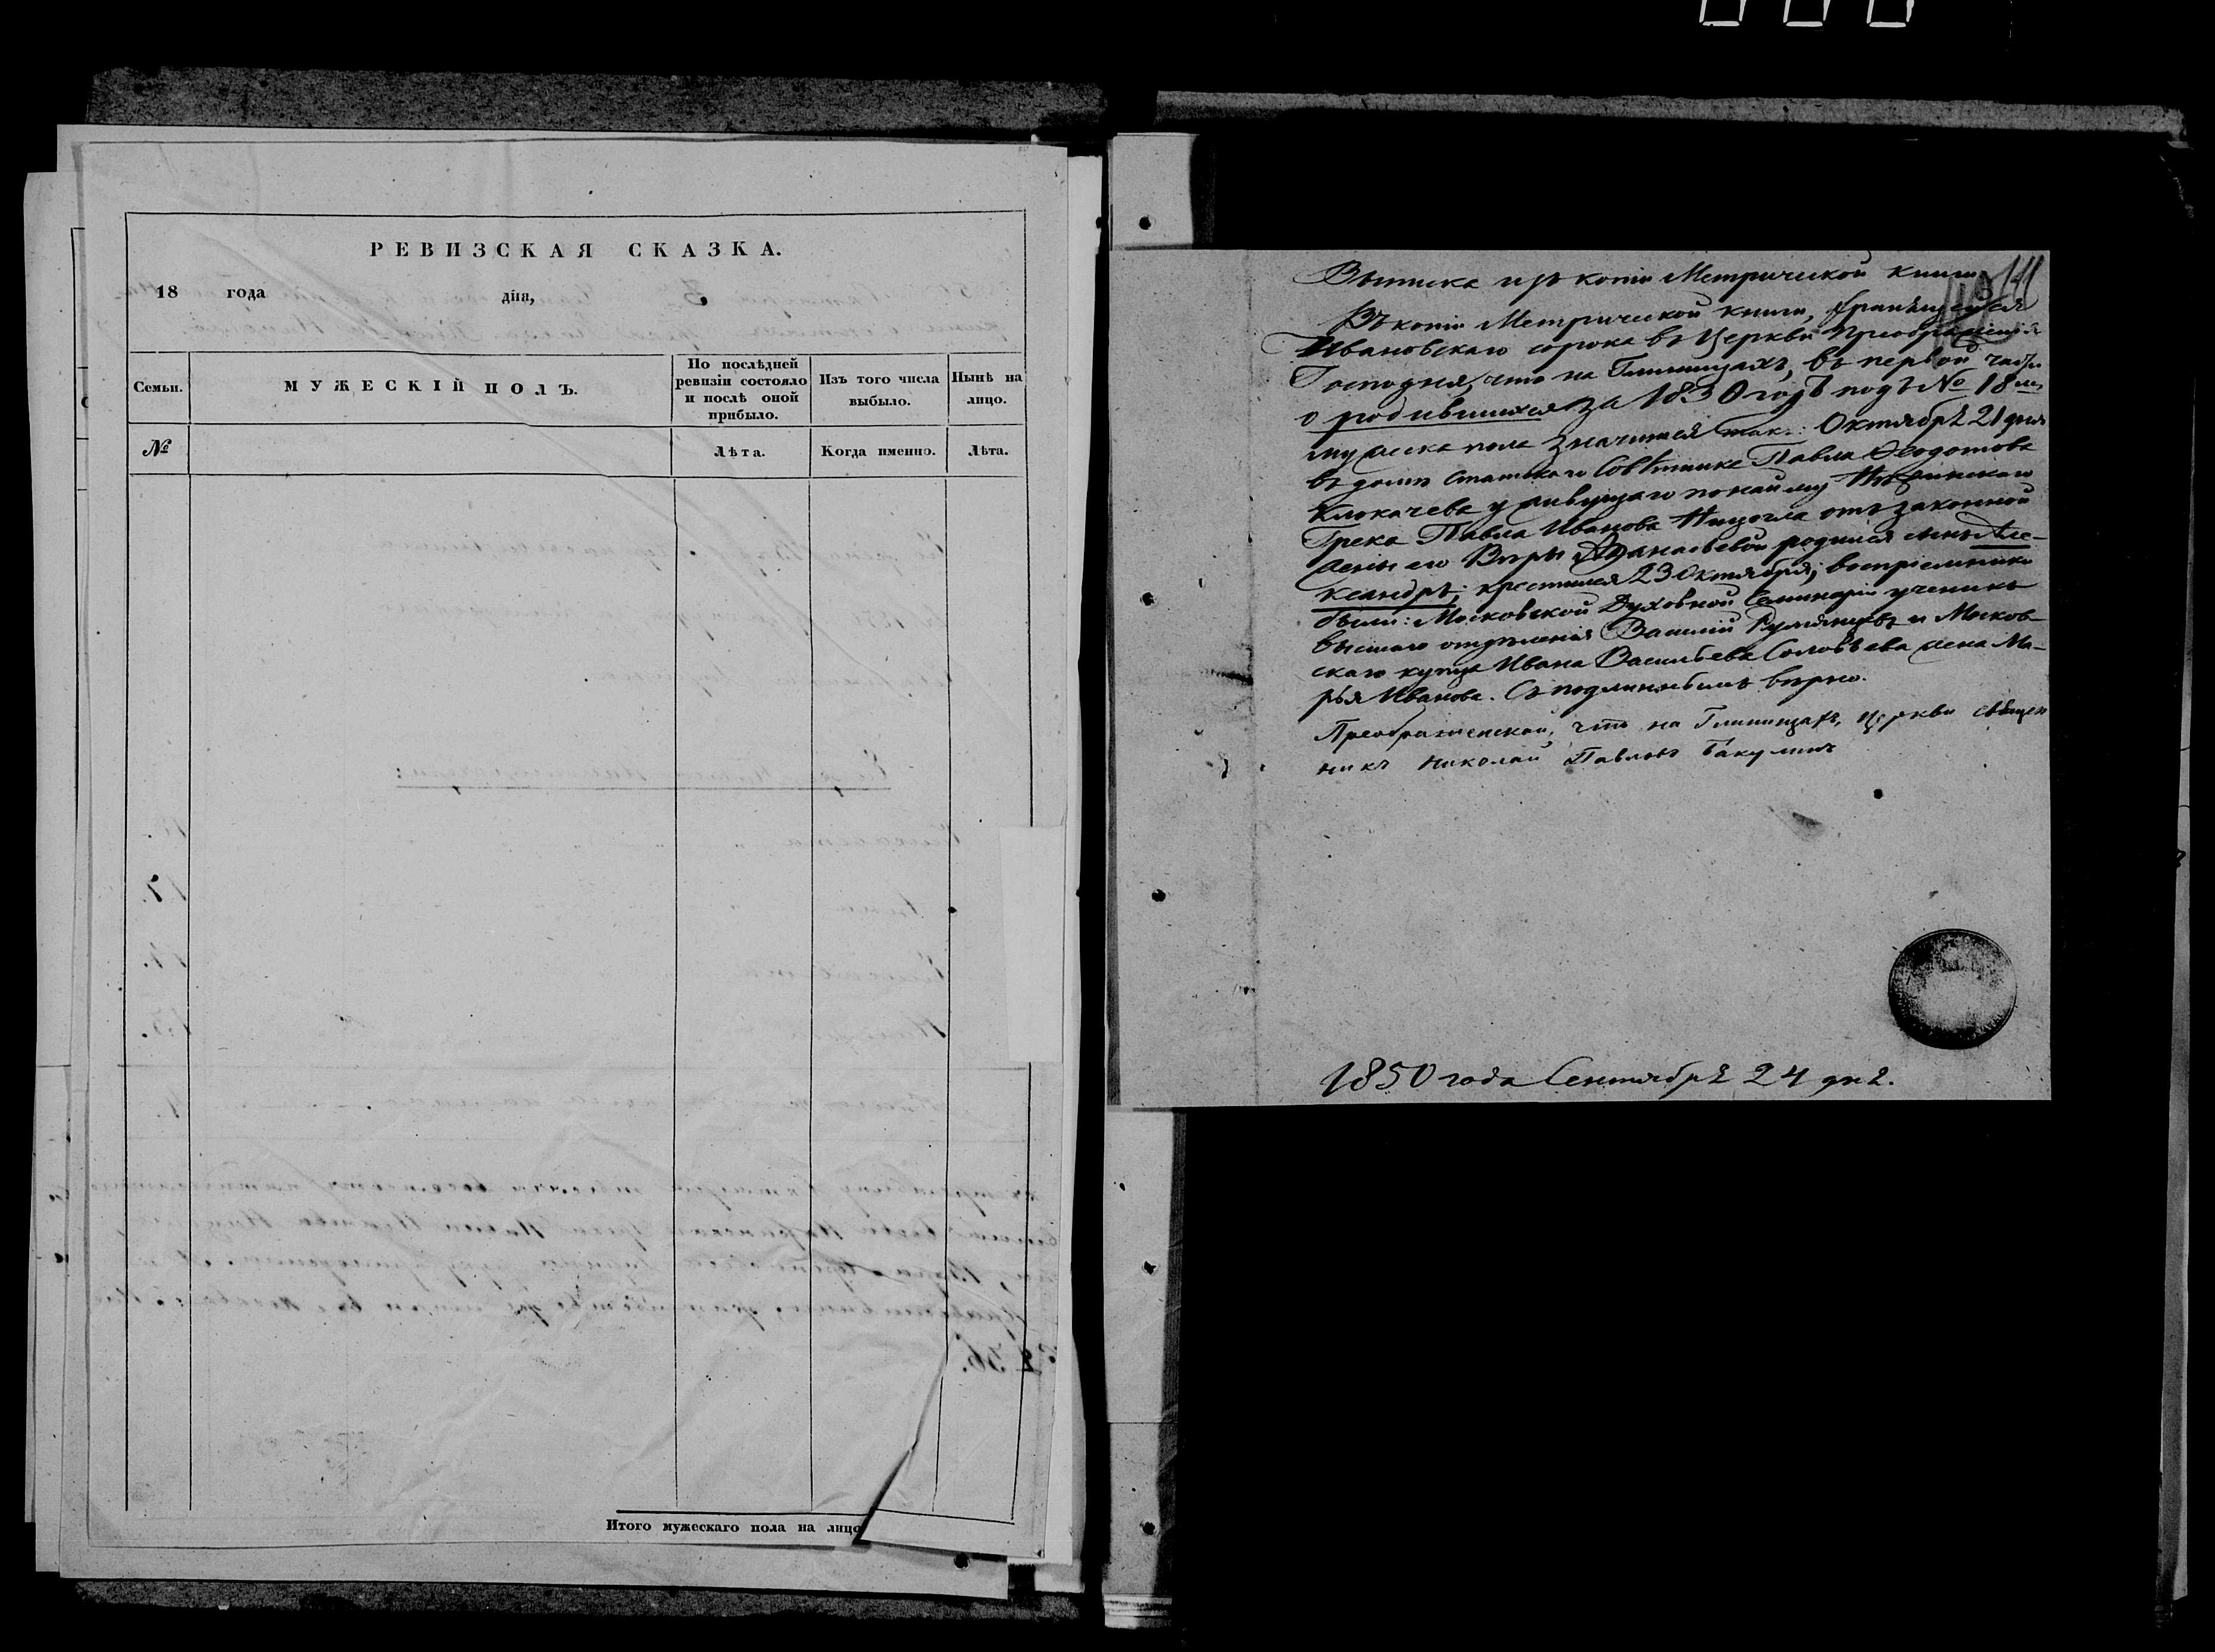 РЕВИЗСКАЯ СКАЗКА.
18 года дня,
Семьи. МУЖЕСКІЙ ПОЛЪ. По послѣдней ревизіи состояло и послѣ оной прибыло. Изъ того числа выбыло. Нынѣ на лицо.
№ Лѣта. Когда именно. Лѣта.
Итого мужескаго пола на лицо
Выписка изъ копіи Метрической книги
Въ копіи Метрической книги, хранящейся
Ивановскаго сорока въ Церкви Преображенія
Господня, что на Глинищахъ, въ первой части
о родившихся за 1830 годъ подъ № 18м,
мужеска пола значится так: Октября 21 дня
въ домѣ Статскаго Совѣтника Павла Ѳеодотова
Клокачева у живущаго по найму Нѣжинскаго
Грека Павла Иванова Ницогла отъ законной
жены его Вѣры Аѳанасьевой родился сынъ Але-
ксандръ; крестился 23 Октября; воспріемники
были: Московской Духовной Семинаріи ученикъ
высшаго отдѣленія Василій Румянцевъ и Москов-
скаго купца Ивана Васильева Соловьева жена Ма-
рья Иванова. Съ подлиннымъ вѣрно.
Преображенской, что на Глинищахъ, церкви священ
никъ Николай Павловъ Бакулинъ
1850 года Сентября 24 дня.